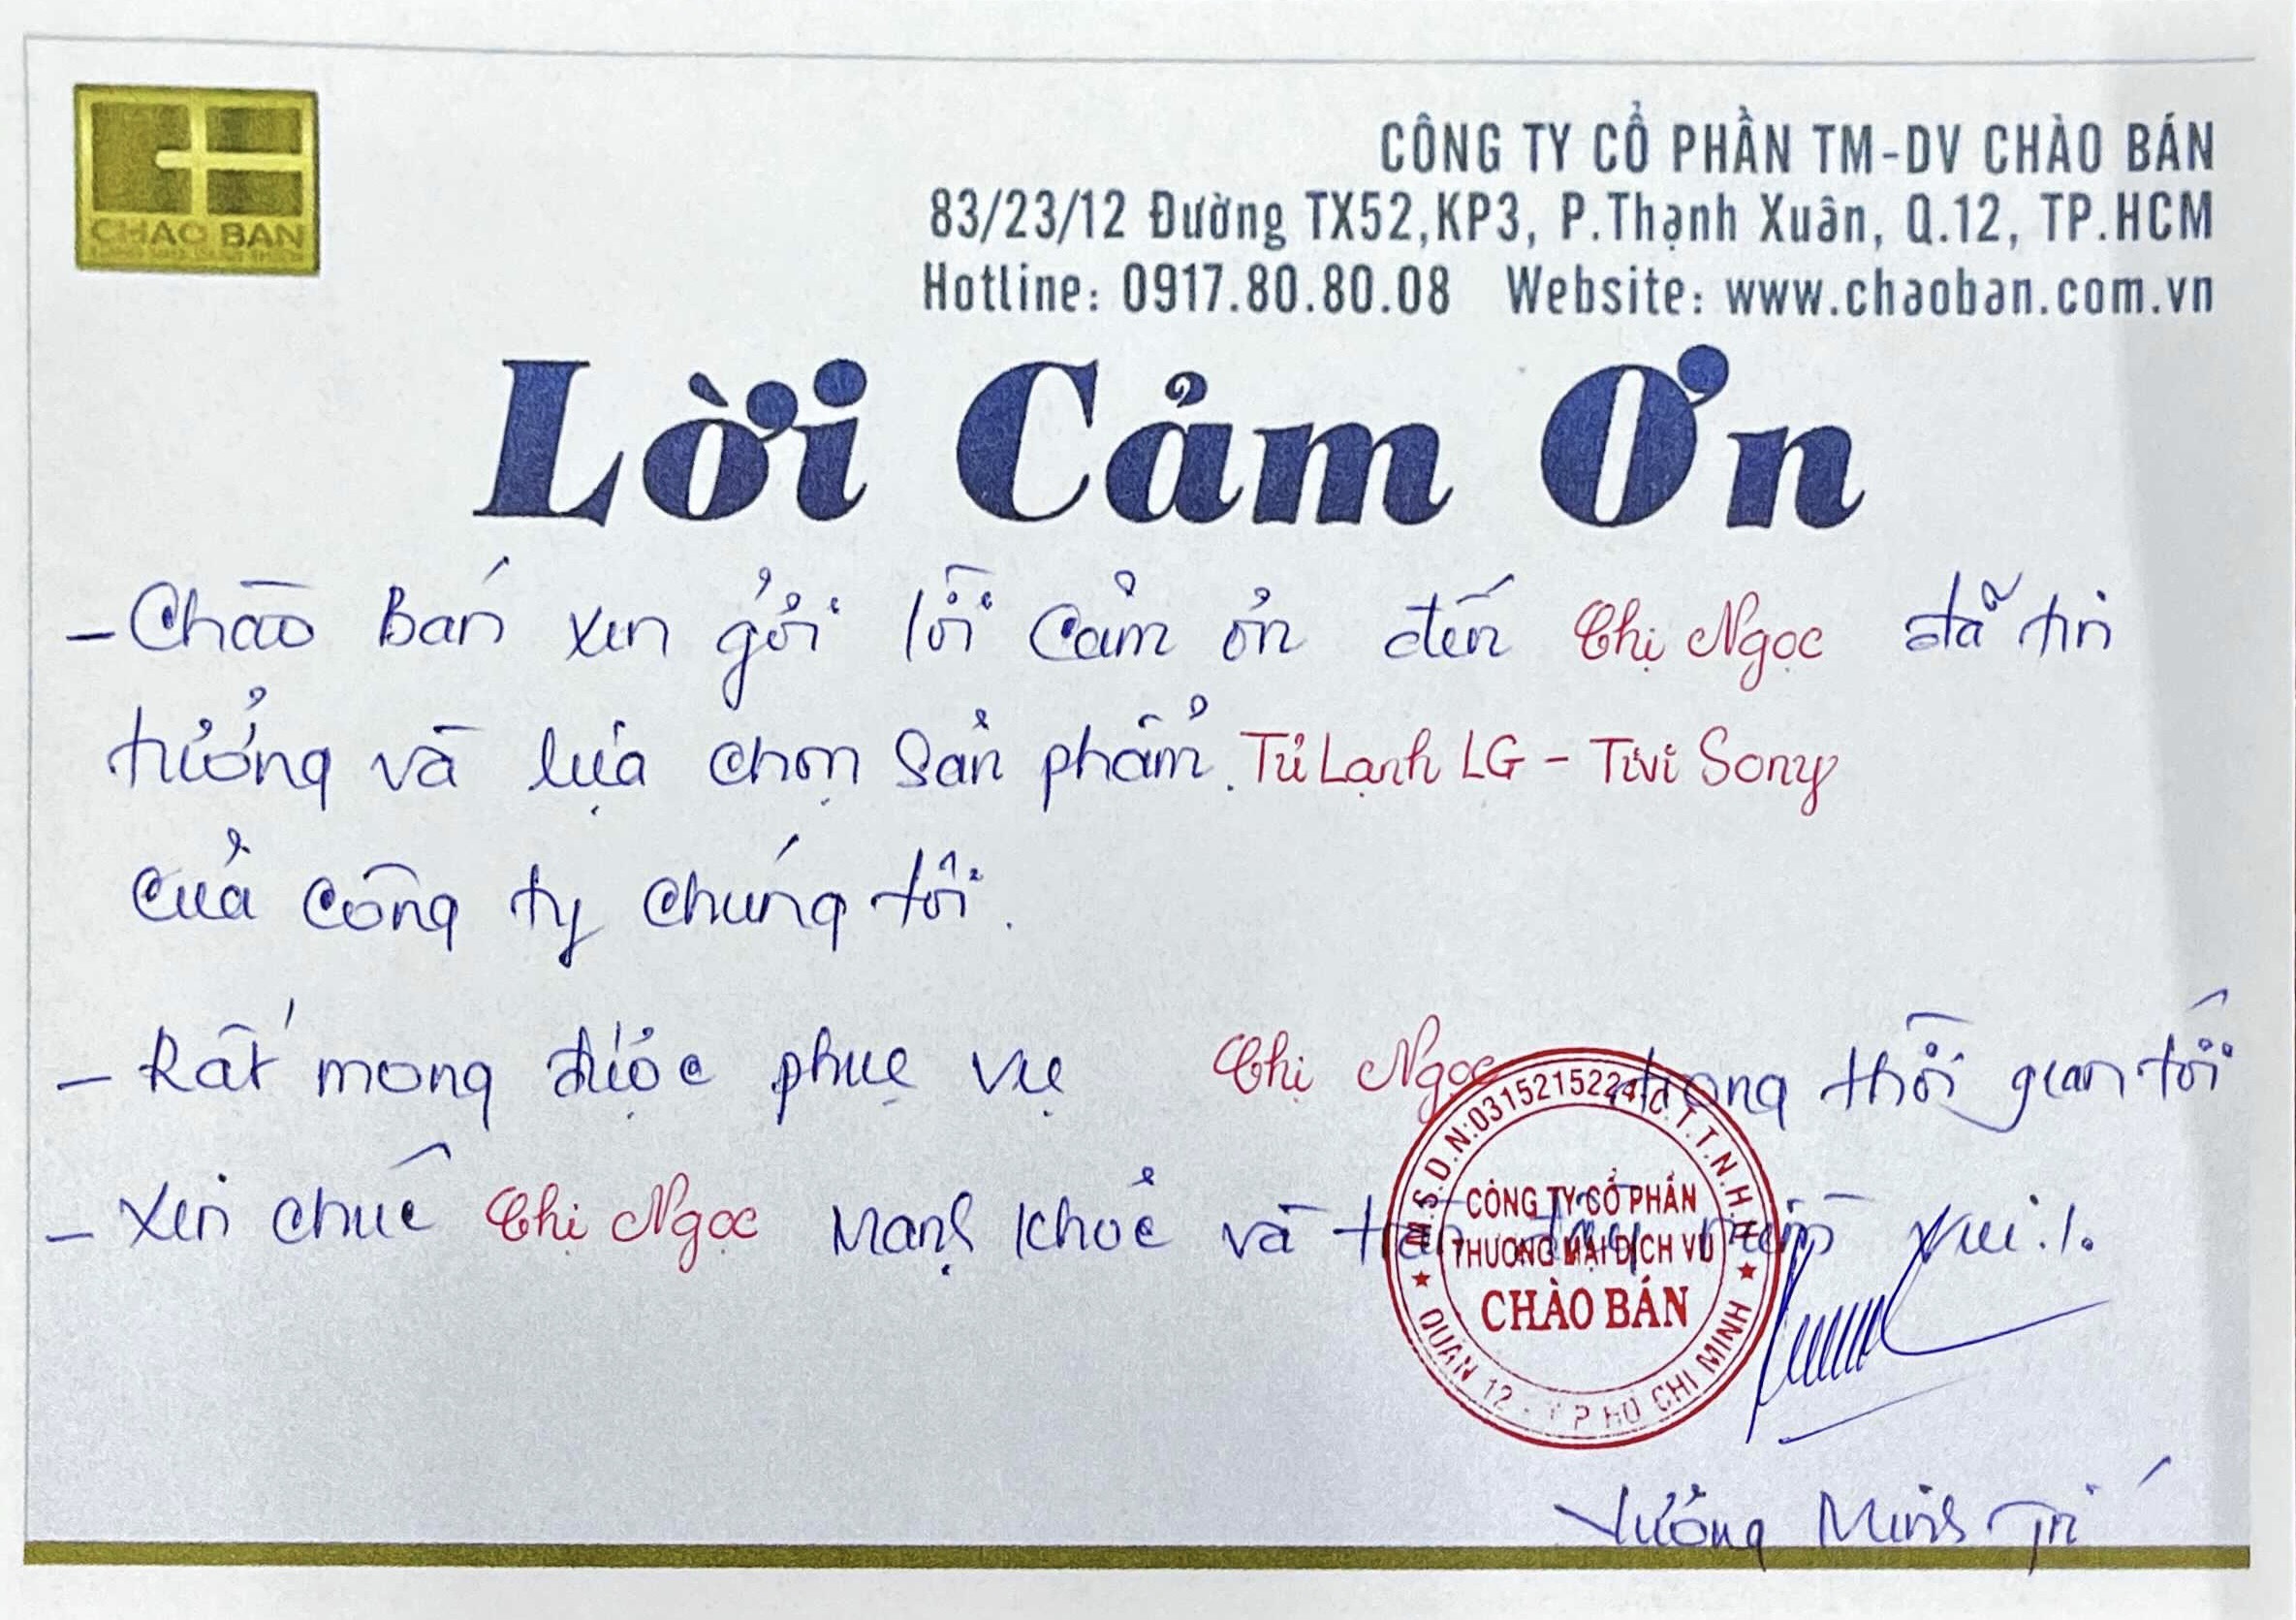 CHAO BAN
CÔNG TY CỔ PHẦN TM-DV CHÀO BÁN
83/23/12 Đường TX52,KP3, P.Thạnh Xuân, Q.12, TP.HCM
Hotline: 0917.80.80.08 Website: www.chaoban.com.vn
Lời Cảm Ơn
- Chào Bán xin gởi lời cảm ơn đến Chị Ngọc đã tin
tưởng và lựa chọn sản phẩm. Tủ Lạnh LG - Tivi Sony
của công ty chúng tôi.
- Rất mong được phục vụ Chị Ngọc trong thời gian tới
- Xin chúc Chị Ngọc mạnh khoẻ và tràn đầy niềm vui./.
M.S.D.N:0315215224-C.T.T.N.H.H
CÔNG TY CỔ PHẦN
THƯƠNG MẠI DỊCH VỤ
CHÀO BÁN
QUẬN 12 - T P HỒ CHÍ MINH
Minh Trí